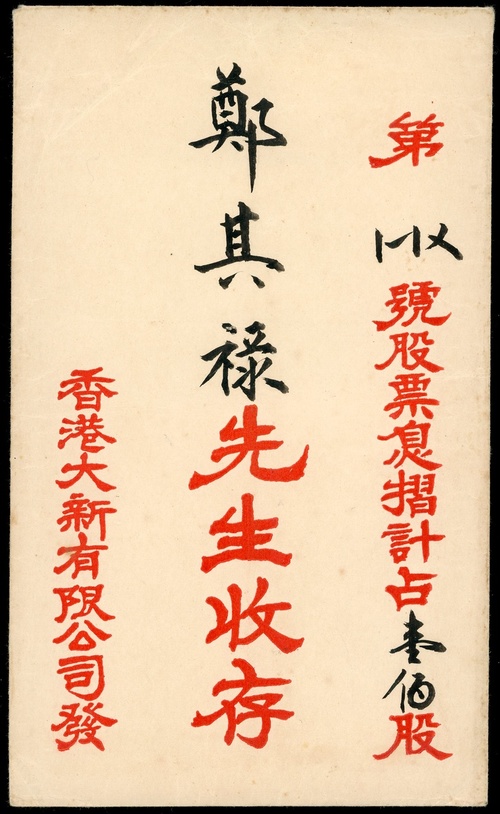 第 號股票息摺計占壹佰股
鄭其祿先生收存
香港大新有限公司發